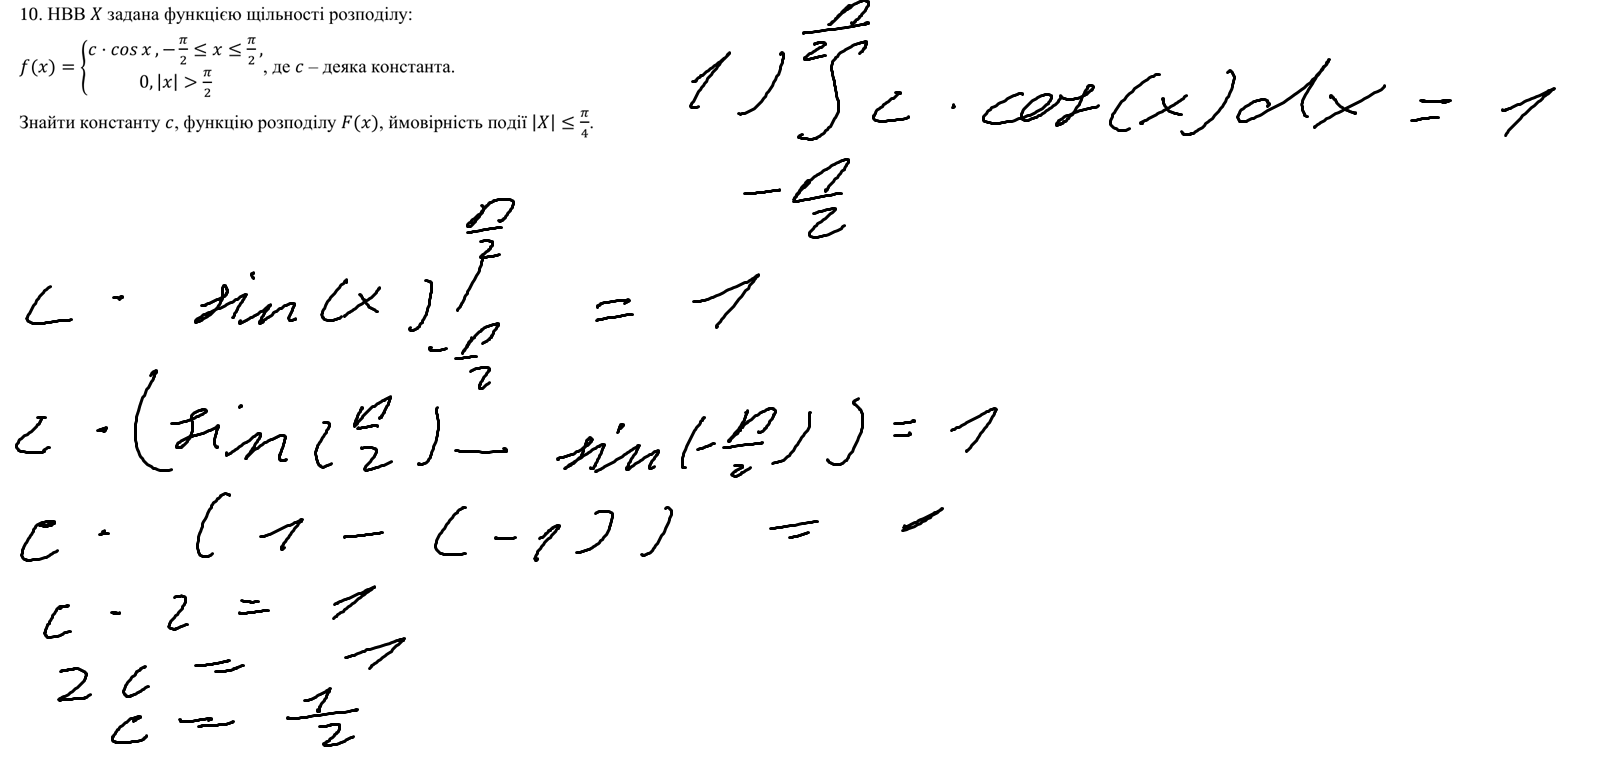 10. НВВ X задана функцією щільності розподілу:
f(x) = { c · cos x , −π/2 ≤ x ≤ π/2,
0, |x| > π/2 , де c – деяка константа.
Знайти константу c, функцію розподілу F(x), ймовірність події |X| ≤ π/4.
1) ∫_{-π/2}^{π/2} c · cos(x) dx = 1
c · sin(x) |_{-π/2}^{π/2} = 1
c · (sin(π/2) − sin(−π/2)) = 1
c · (1 − (−1)) = 1
c · 2 = 1
2c = 1
c = 1/2